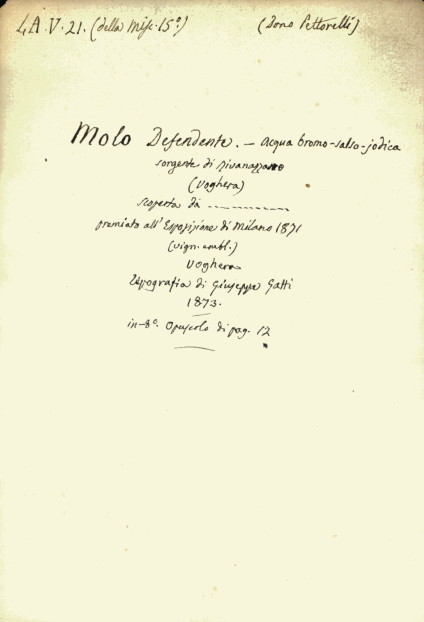 LA.V.21. (della Misc. 15ª) (Dono Pettorelli)
Molo Defendente. — Acqua bromo-salso-jodica
sorgente di Rivanazzano
(Voghera)
scoperta da -----------
premiato all'Esposizione di Milano 1871
(vign. embl.)
Voghera
Tipografia di Giuseppe Gatti
1873.
in-8º. Opuscolo di pag. 12